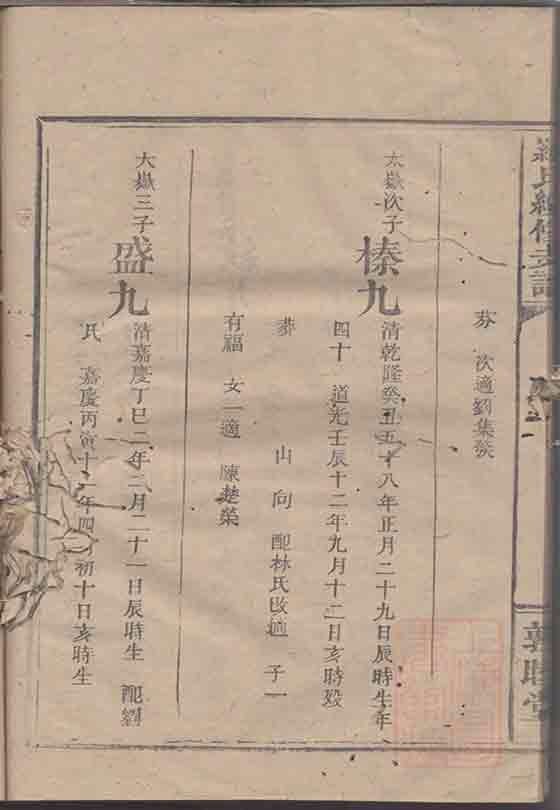 氏續修支譜
芬 次適劉集發
太嶽次子
榛九
清乾隆癸丑五十八年正月二十九日辰時生年
四十 道光壬辰十二年九月十二日亥時歿
葬 山 向 配林氏改適 子一
有福 女一適 陳楚榮
太嶽三子
盛九
清嘉慶丁巳二年二月二十一日辰時生 配劉
氏 嘉慶丙寅十一年四月初十日亥時生